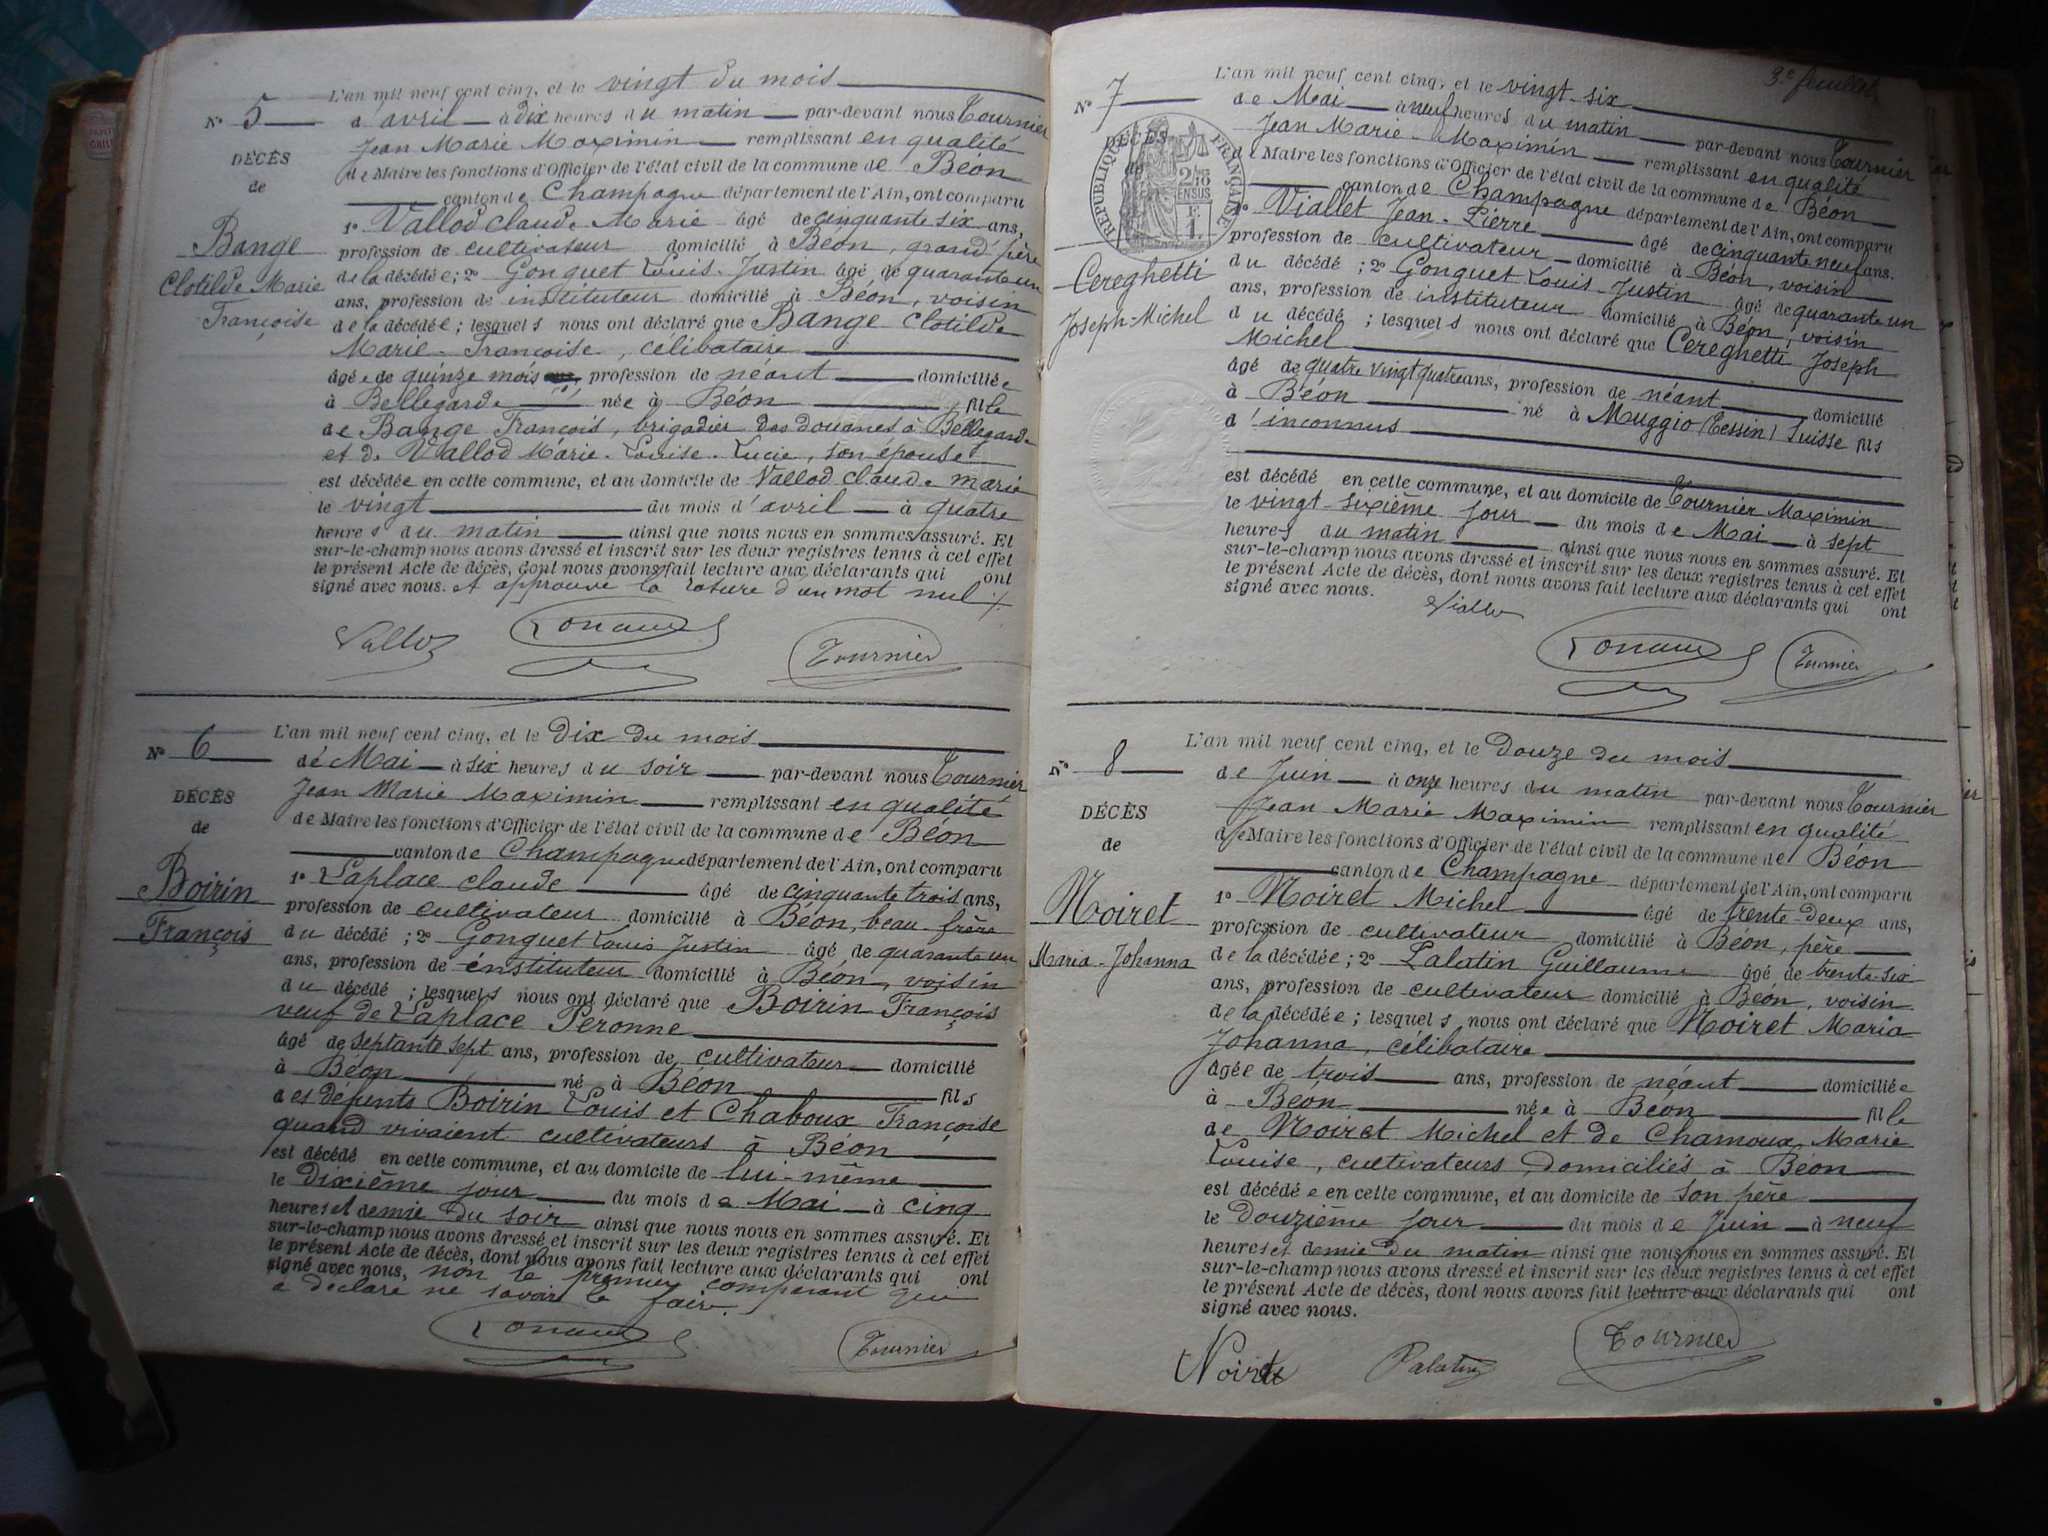 L'an mil neuf cent cinq, et le vingt du mois
N° 5
d'avril à dix heures du matin par-devant nous Tournier
Jean Marie Maximin remplissant en qualité
DÉCÈS
de Maire les fonctions d'Officier de l'état civil de la commune de Béon
de
canton de Champagne département de l'Ain, ont comparu
1° Vallod Claude Marie âgé de cinquante six ans,
Bange
profession de cultivateur domicilié à Béon, grand'père
Clotilde Marie
de la décédée; 2° Gonguet Louis Justin âgé de quarante un
ans, profession de instituteur domicilié à Béon, voisin
Françoise
de la décédée; lesquels nous ont déclaré que Bange Clotilde
Marie-Françoise, célibataire
âgée de quinze mois profession de néant domiciliée
à Bellegarde née à Béon fille
de Bange François, brigadier des douanes à Bellegarde
et de Vallod Marie-Louise-Lucie, son épouse
est décédée en cette commune, et au domicile de Vallod Claude Marie
le vingt du mois d'avril à quatre
heures du matin ainsi que nous nous en sommes assuré. Et
sur-le-champ nous avons dressé et inscrit sur les deux registres tenus à cet effet
le présent Acte de décès, dont nous avons fait lecture aux déclarants qui ont
signé avec nous. et approuvé la rature d'un mot nul
Vallod Tournier
L'an mil neuf cent cinq, et le dix du mois
N° 6
de Mai à six heures du soir par-devant nous Tournier
Jean Marie Maximin remplissant en qualité
DÉCÈS
de Maire les fonctions d'Officier de l'état civil de la commune de Béon
de
canton de Champagne département de l'Ain, ont comparu
1° Laplace Claude âgé de cinquante trois ans,
Boirin
profession de cultivateur domicilié à Béon, beau-frère
François
du décédé; 2° Gonguet Louis Justin âgé de quarante un
ans, profession de instituteur domicilié à Béon, voisin
du décédé; lesquels nous ont déclaré que Boirin François
veuf de Laplace Péronne
âgé de septante sept ans, profession de cultivateur domicilié
à Béon né à Béon fils
des défunts Boirin Louis et Chaboux Françoise
quand vivaient cultivateurs à Béon
est décédé en cette commune, et au domicile de lui-même
le dixième jour du mois de Mai à cinq
heures et demie du soir ainsi que nous nous en sommes assuré. Et
sur-le-champ nous avons dressé et inscrit sur les deux registres tenus à cet effet
le présent Acte de décès, dont nous avons fait lecture aux déclarants qui ont
signé avec nous, non le premier comparant qui
a déclaré ne savoir le faire.
Tournier
3e feuillet
L'an mil neuf cent cinq, et le vingt-six
N° 7
de Mai à neuf heures du matin par-devant nous Tournier
Jean Marie Maximin remplissant en qualité
DÉCÈS
RÉPUBLIQUE FRANÇAISE
de Maire les fonctions d'Officier de l'état civil de la commune de Béon
canton de Champagne département de l'Ain, ont comparu
1° Viallet Jean-Pierre âgé de cinquante neuf ans.
profession de cultivateur domicilié à Béon, voisin
Cereghetti
du décédé; 2° Gonguet Louis-Justin âgé de quarante un
Joseph-Michel
ans, profession de instituteur domicilié à Béon, voisin
du décédé; lesquels nous ont déclaré que Cereghetti Joseph
Michel
âgé de quatre vingt quatre ans, profession de néant domicilié
à Béon né à Muggio (Tessin) Suisse fils
d'inconnus
est décédé en cette commune, et au domicile de Tournier Maximin
le vingt-sixième jour du mois de Mai à sept
heures du matin ainsi que nous nous en sommes assuré. Et
sur-le-champ nous avons dressé et inscrit sur les deux registres tenus à cet effet
le présent Acte de décès, dont nous avons fait lecture aux déclarants qui ont
signé avec nous.
Tournier
L'an mil neuf cent cinq, et le douze du mois
N° 8
de Juin à onze heures du matin par-devant nous Tournier
Jean Marie Maximin remplissant en qualité
DÉCÈS
de Maire les fonctions d'Officier de l'état civil de la commune de Béon
de
canton de Champagne département de l'Ain, ont comparu
1° Noiret Michel âgé de trente-deux ans,
Noiret
profession de cultivateur domicilié à Béon, père
Maria-Johanna
de la décédée; 2° Palatin Guillaume âgé de trente-six
ans, profession de cultivateur domicilié à Béon, voisin
de la décédée; lesquels nous ont déclaré que Noiret Maria
Johanna, célibataire
âgée de trois ans, profession de néant domiciliée
à Béon née à Béon fille
de Noiret Michel et de Chamoux Marie
Louise, cultivateurs domiciliés à Béon
est décédée en cette commune, et au domicile de son père
le douzième jour du mois de Juin à neuf
heures et demie du matin ainsi que nous nous en sommes assuré. Et
sur-le-champ nous avons dressé et inscrit sur les deux registres tenus à cet effet
le présent Acte de décès, dont nous avons fait lecture aux déclarants qui ont
signé avec nous.
Noiret Palatin Tournier